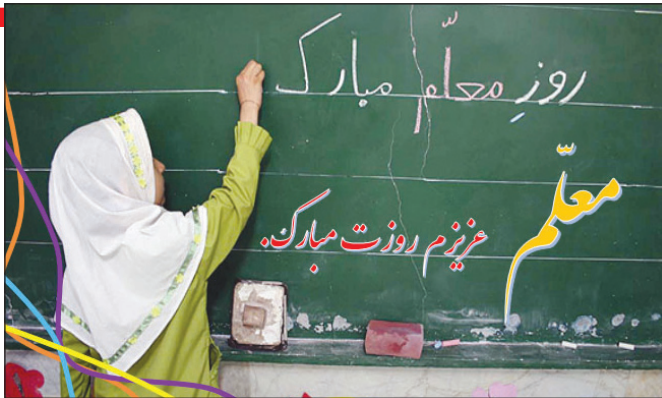 روزِ معلّم مبارک
معلّم
عزیزم روزت مبارک.